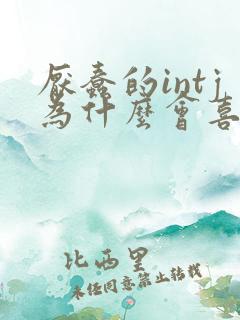 厌蠢的intj
为什么会喜
比西里
未经同意禁止转载